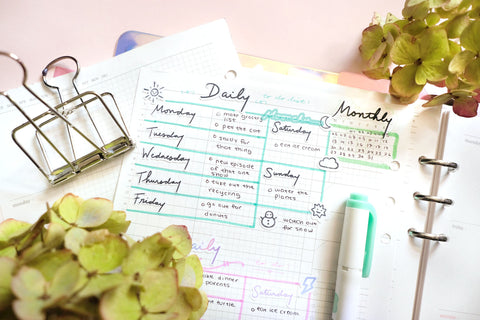 Daily
Monthly
Monday
make grocery
list
pet the cat
Saturday
eat ice cream
Tuesday
study for
that thing
Wednesday
new episode
of that one
show
Sunday
water the
plants
Thursday
take out the
recycling
Friday
go out for
donuts
watch out
for snow
Daily
make dinner
parents
Saturday
eat ice cream